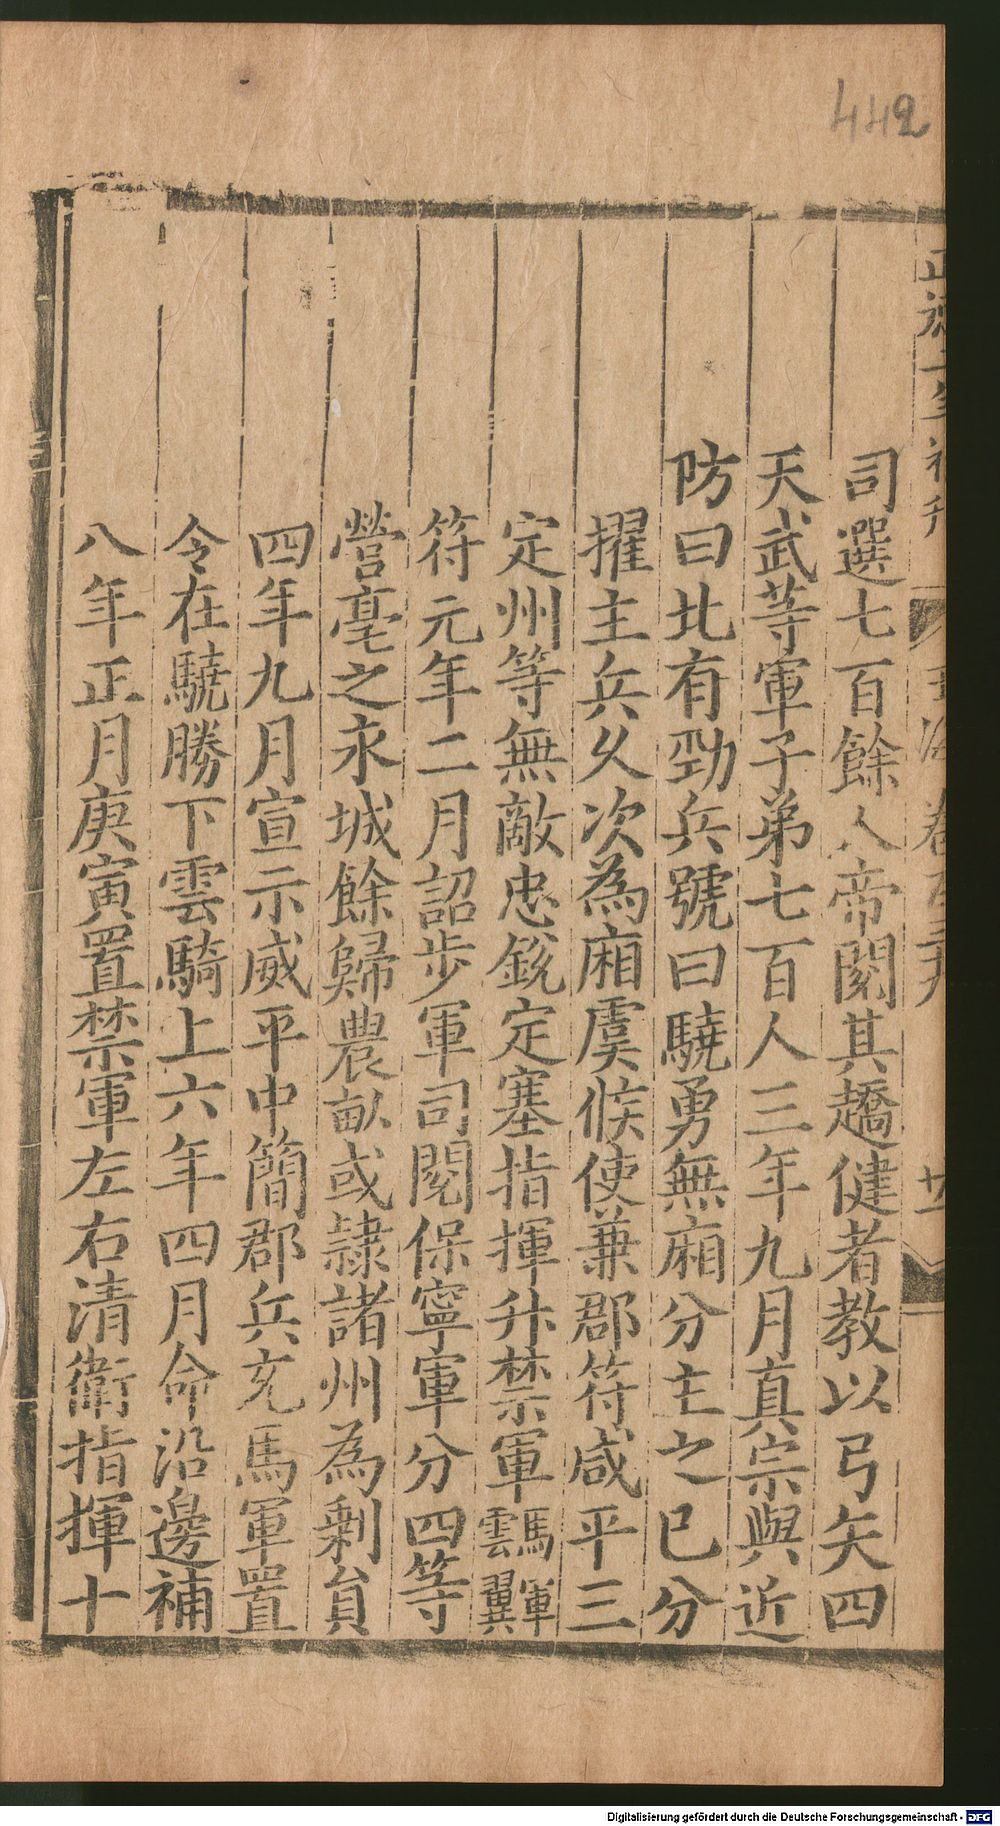 442
司選七百餘人帝閱其趫健者教以弓矢四
天武等軍子弟七百人三年九月真宗與近
防曰北有勁兵號曰驍勇無廂分主之已分
擢主兵乆次為廂虞候使兼郡符咸平三
定州等無敵忠銳定塞指揮升禁軍馬軍雲翼
符元年二月詔步軍司閱保寧軍分四等
營亳之永城餘歸農畝或隷諸州為剰貟
四年九月宣示咸平中簡郡兵充馬軍置
令在驍勝下雲騎上六年四月命沿邊補
八年正月庚寅置禁軍左右清衛指揮十
Digitalisierung gefördert durch die Deutsche Forschungsgemeinschaft - DFG